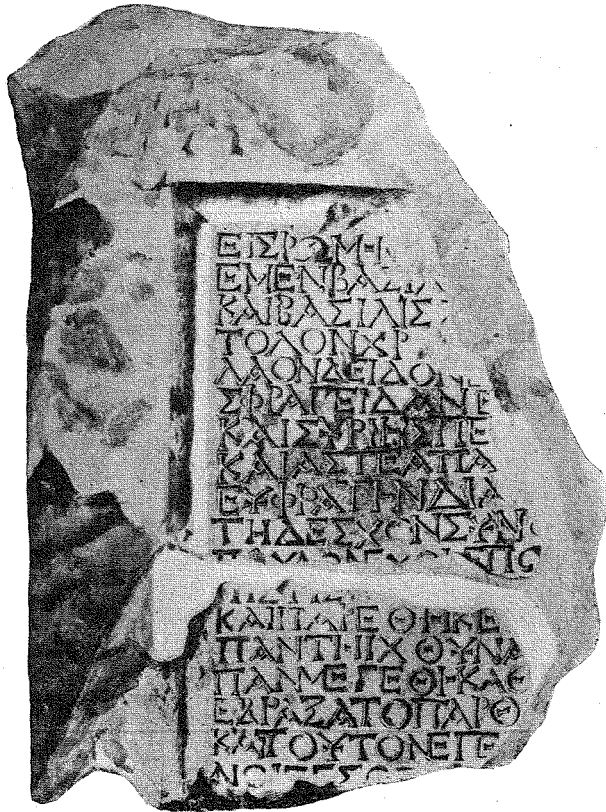 ΕΙΣΡΩΜΗ
ΕΜΕΝΒΑΣ
ΚΑΙΒΑΣΙΛΙΣ
ΤΟΛΟΝΧΡ
ΛΑΟΝΔΕΙΔΟΝ
ΣΦΡΑΓΕΙΔΑΝΕ
ΚΑΙΣΥΡΙΗΣΠΕ
ΚΑΙΑΣΤΕΑΠΑ
ΕΥΦΡΑΤΗΝΔΙΑ
ΤΗΔΕΣΧΟΝΣΥΝΟ
ΚΑΙΠΑΡΕΘΗΚΕ
ΠΑΝΤΗΙΧΘΥΝΑ
ΠΑΝΜΕΓΕΘΗΚΑΘ
ΕΔΡΑΞΑΤΟΠΑΡΘ
ΚΑΙΤΟΥΤΟΝΕΠΕ